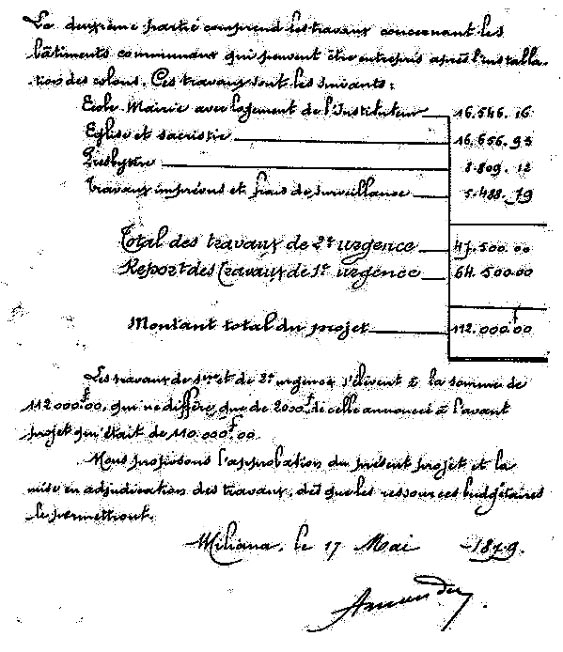 La deuxième partie comprend les travaux concernant les
bâtiments communaux qui peuvent être entrepris après l'installa-
tion des colons. Ces travaux sont les suivants:
Ecole-Mairie avec logement de l'Instituteur 16.546.16
Eglise et sacristie 16.656.93
Presbytère 8.809.12
Travaux imprévus et frais de surveillance 5.488.79
Total des travaux de 2e urgence 47.500.00
Report des travaux de 1e urgence 64.500.00
Montant total du projet 112.000f00
Les travaux de 1ere et de 2e urgence s'élèvent à la somme de
112000f00, qui ne diffère que de 2000f de celle annoncée à l'avant
projet qu'était de 110.000f00
Nous proposons l'approbation du présent projet et la
mise en adjudication des travaux, dès que les ressources budgétaires
le permettront.
Miliana, le 17 Mai 1879.